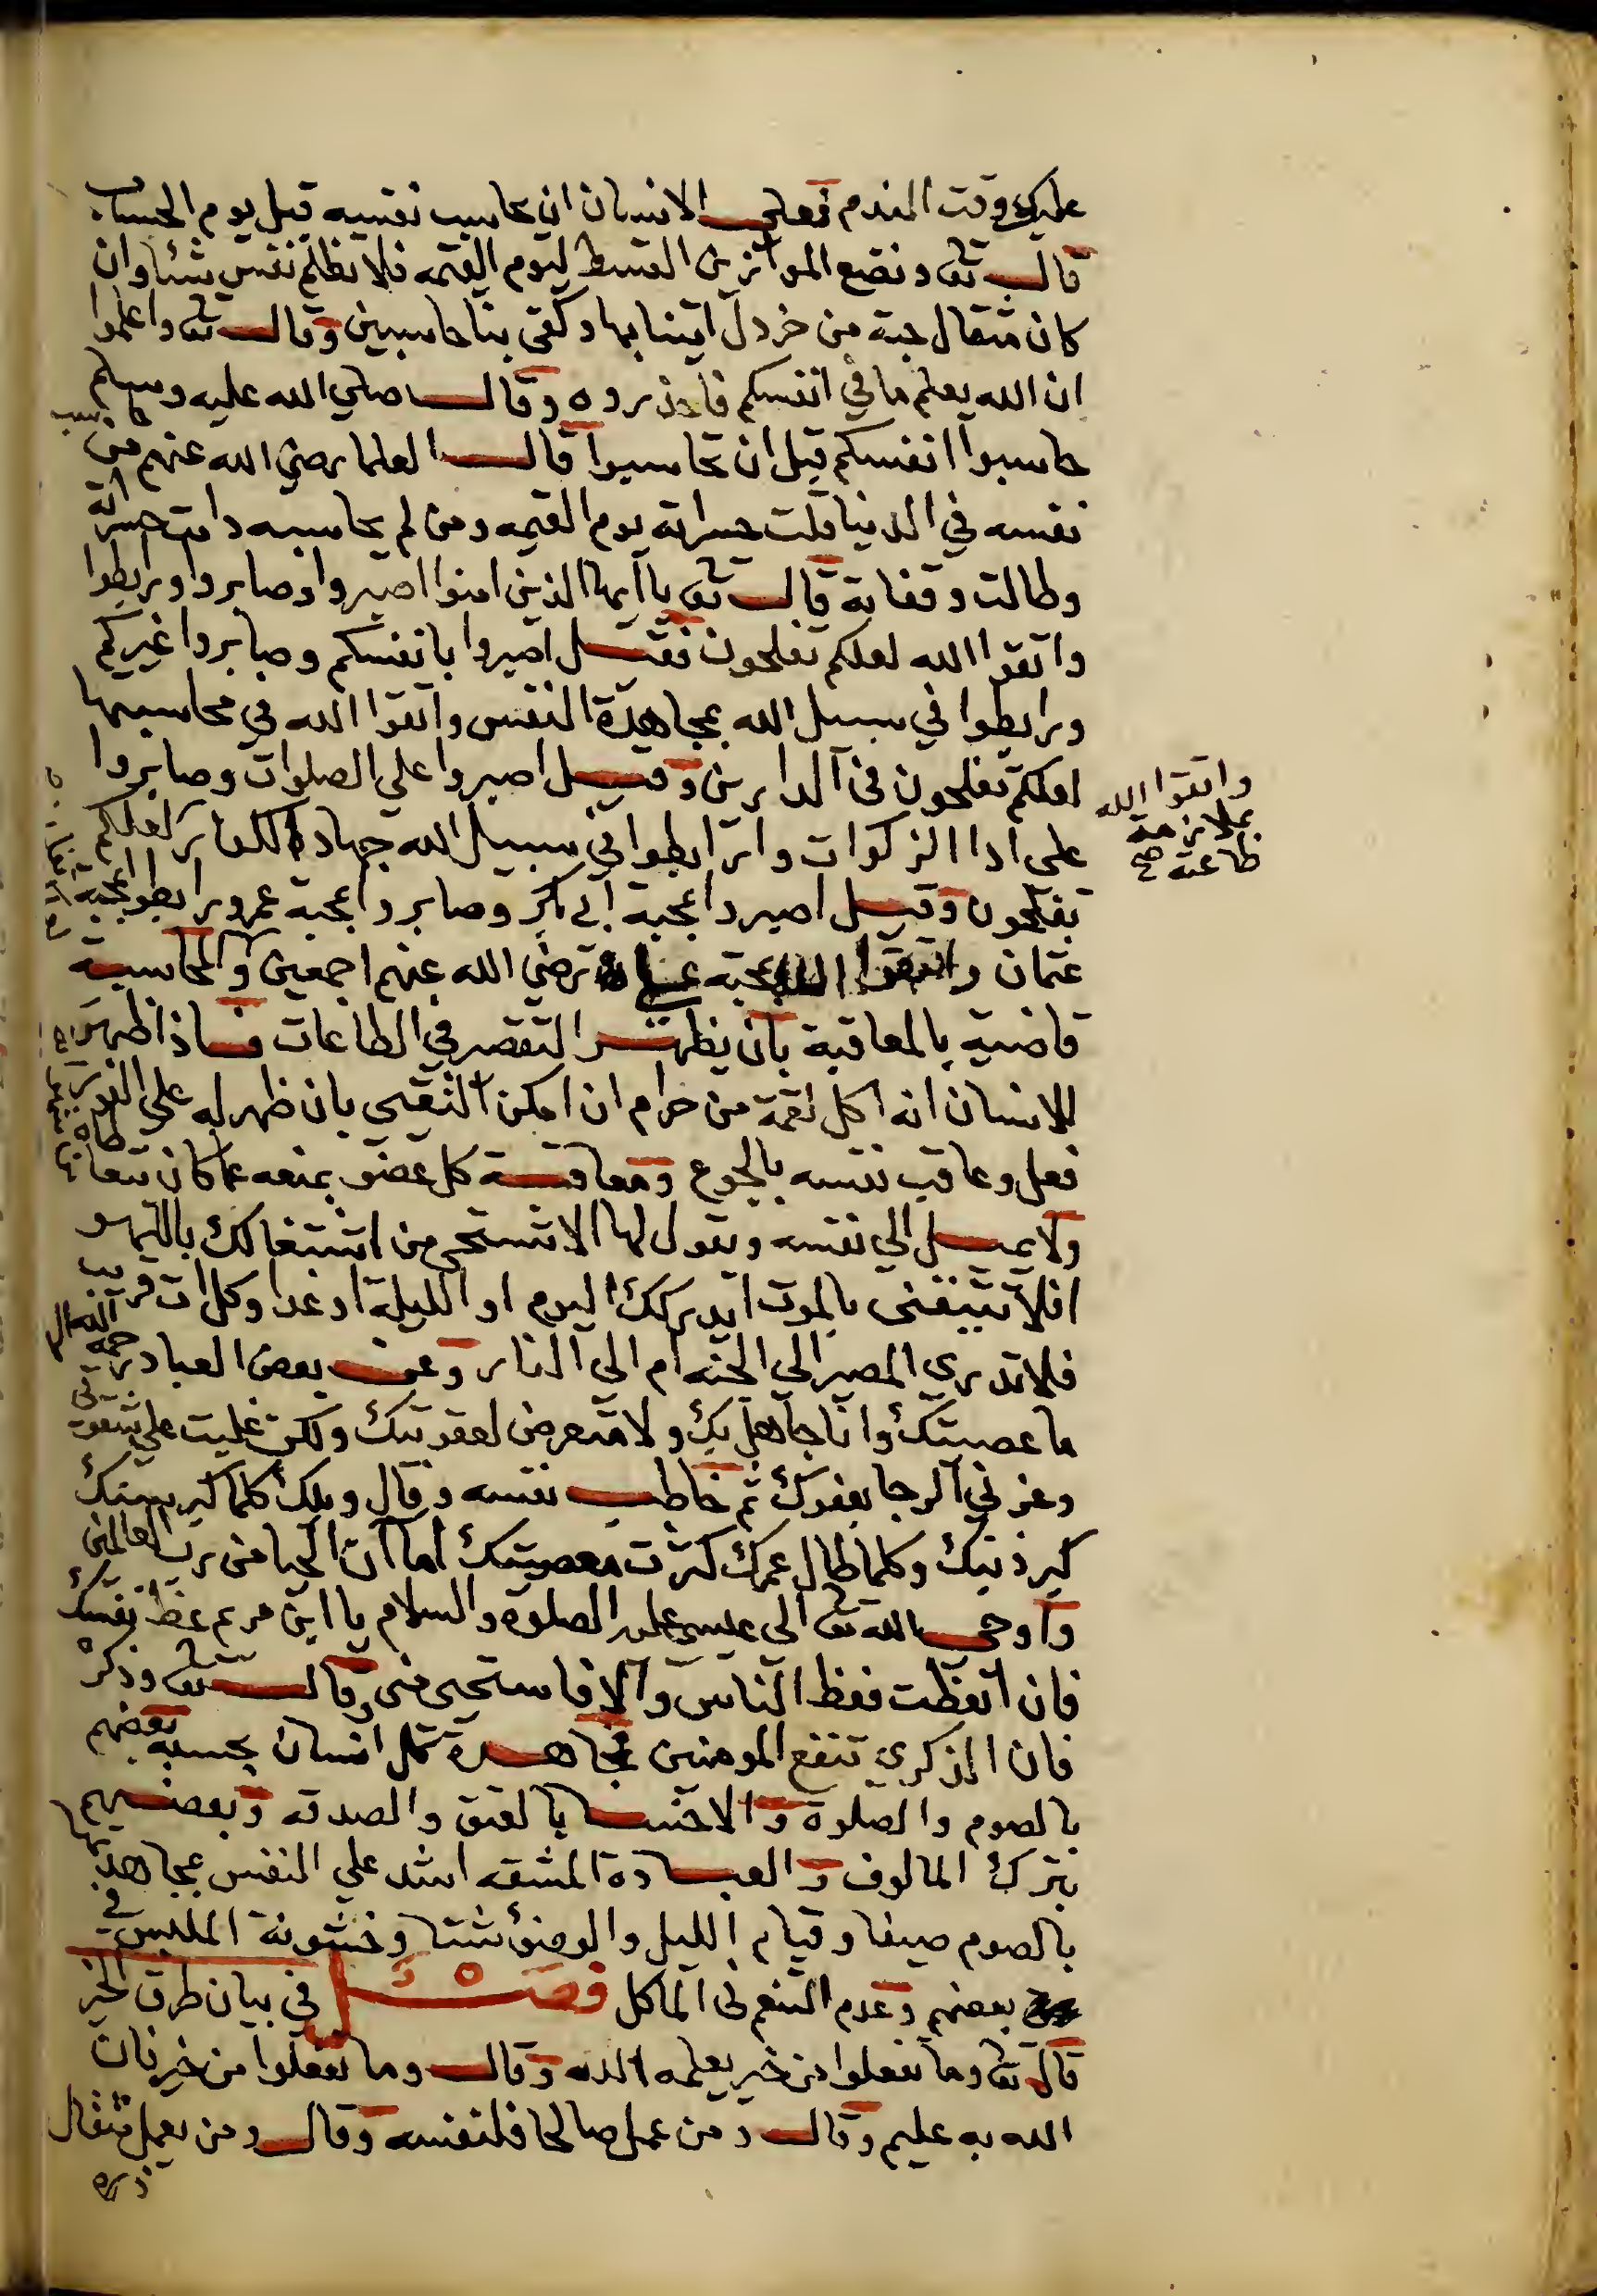 عليك وقت المندم فعلى الانسان ان يحاسب نفسه قبل يوم الحساب
قال تعـ ونضع الموازين القسط ليوم القيمه فلا تظلم نفس شئا وان
كان مثقال حبة من خردل اتينا بها وكفى بنا حاسبين وقال تعـ واعلموا
ان الله يعلم ما في انفسكم فاحذروه وقال صلي الله عليه وسلم
حاسبوا انفسكم قبل ان تحاسبوا قال العلما رضي الله عنهم من حاسب
نفسه في الدنيا قلت حسراته يوم القيمه ومن لم يحاسبه دامت حسراته
وطالت وقفاته قال تعـ يا ايها الذين امنوا اصبروا وصابروا ورابطوا
واتقوا الله لعلكم تفلحون فقيل اصبروا بانفسكم وصابروا غيركم
ورابطوا في سبيل الله بمجاهدة النفس واتقوا الله في محاسبتها
لعلكم تفلحون في الدارين وقيل اصبروا علي الصلوات وصابروا
على ادا الزكوات ورابطوا في سبيل الله جهاد الكفار لعلكم
واتقوا الله
بملازمة
طاعته صح
تفلحون وقيل اصبروا بمحبة ابي بكر وصابروا بمحبة عمر ورابطوا بمحبة
عثمان واتقوا الله بمحبة علي رضي الله عنهم اجمعين والمحاسبة
قاضية بالمعاقبة بان يظهر التقصير في الطاعات فاذا ظهر
للانسان انه اكل لقمة من حرام ان امكن التقيى بان ظهر له على الفور
فعل وعاقب نفسه بالجوع ومعاقبة كل عضو بمنعه عما كان
ولا يميل الي نفسه ويقول لها الا تستحي من اشتغالك باللهو
افلا تتيقني بالموت ايدركك اليوم او الليلة او غدا وكل ات قريب
فلا تدري المصير الي الجنه ام الي النار وعن بعض العباد رحمه الله قال
ما عصيتك وانا جاهل بك ولا متعرض لعقوبتك ولكن غلبت علي شقوتي
وغرني الرجا بعفوك ثم خاطب نفسه وقال ويلك كلما كبر سنك
كبر ذنبك وكلما طال عمرك كثرت معصيتك اما آن الحيا من رب العالمين
واوحى الله تعـ الي عيسى عليه الصلوة والسلام يا ابن مريم عظ نفسك
فان اتعظت فعظ الناس والا فاستحيى مني وقال تعـ وذكر
فان الذكري تنفع المومنين فمجاهدة كل انسان بحسبه بعضهم
بالصوم والصلوة والاخر بالعتق والصدقه وبعضهم
بترك المالوف والعبادة المشقه اشد علي النفس بمجاهدتها
بالصوم صيفا وقيام الليل والوضؤ شتا وخشونة الملبس في
بعضهم وعدم التنعم في الماكل فصل في بيان طرق الخير
قال تعـ وما تفعلوا من خير يعلمه الله وقال وما تفعلوا من خير فان
الله به عليم وقال ومن عمل صالحا فلنفسه وقال ومن يعمل مثقال
ذرة